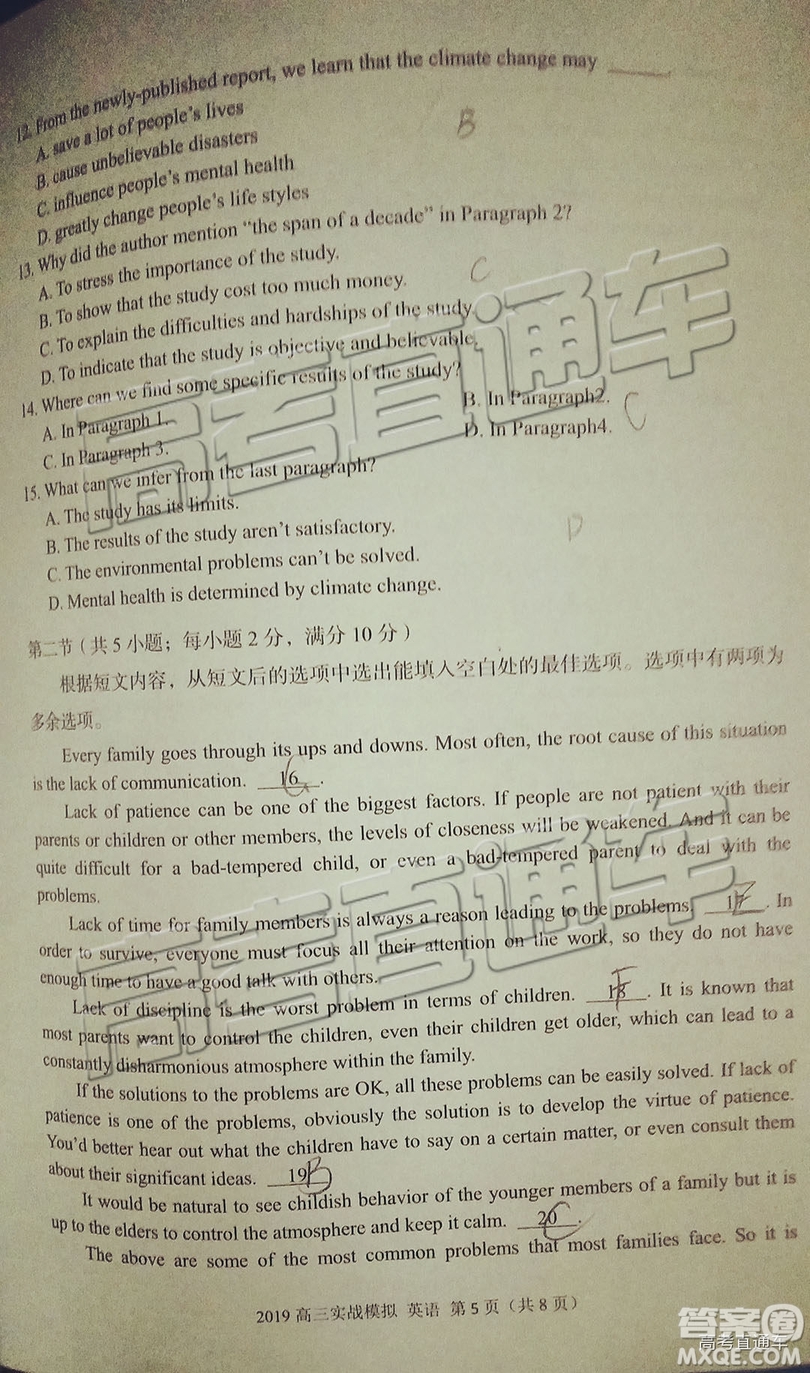 12. From the newly-published report, we learn that the climate change may ______.
A. save a lot of people's lives
B. cause unbelievable disasters
B
C. influence people's mental health
D. greatly change people's life styles
13. Why did the author mention "the span of a decade" in Paragraph 2?
A. To stress the importance of the study.
C
B. To show that the study cost too much money.
C. To explain the difficulties and hardships of the study.
D. To indicate that the study is objective and believable.
14. Where can we find some specific results of the study?
A. In Paragraph 1. B. In Paragraph2.
C
C. In Paragraph 3. D. In Paragraph4.
15. What can we infer from the last paragraph?
A. The study has its limits.
B. The results of the study aren't satisfactory.
D
C. The environmental problems can't be solved.
D. Mental health is determined by climate change.
第二节(共5小题;每小题2分,满分10分)
根据短文内容,从短文后的选项中选出能填入空白处的最佳选项。选项中有两项为
多余选项。
Every family goes through its ups and downs. Most often, the root cause of this situation
is the lack of communication. 16 .
Lack of patience can be one of the biggest factors. If people are not patient with their
parents or children or other members, the levels of closeness will be weakened. And it can be
quite difficult for a bad-tempered child, or even a bad-tempered parent to deal with the
problems.
Lack of time for family members is always a reason leading to the problems. 17 . In
order to survive, everyone must focus all their attention on the work, so they do not have
enough time to have a good talk with others.
Lack of discipline is the worst problem in terms of children. 18 . It is known that
most parents want to control the children, even their children get older, which can lead to a
constantly disharmonious atmosphere within the family.
If the solutions to the problems are OK, all these problems can be easily solved. If lack of
patience is one of the problems, obviously the solution is to develop the virtue of patience.
You'd better hear out what the children have to say on a certain matter, or even consult them
about their significant ideas. 19 B
It would be natural to see childish behavior of the younger members of a family but it is
up to the elders to control the atmosphere and keep it calm. 20 .
The above are some of the most common problems that most families face. So it is
2019 高三实战模拟 英语 第5页(共8页)
高考直通车
高考直通车
答案圈
高考直通车
MXQE.COM